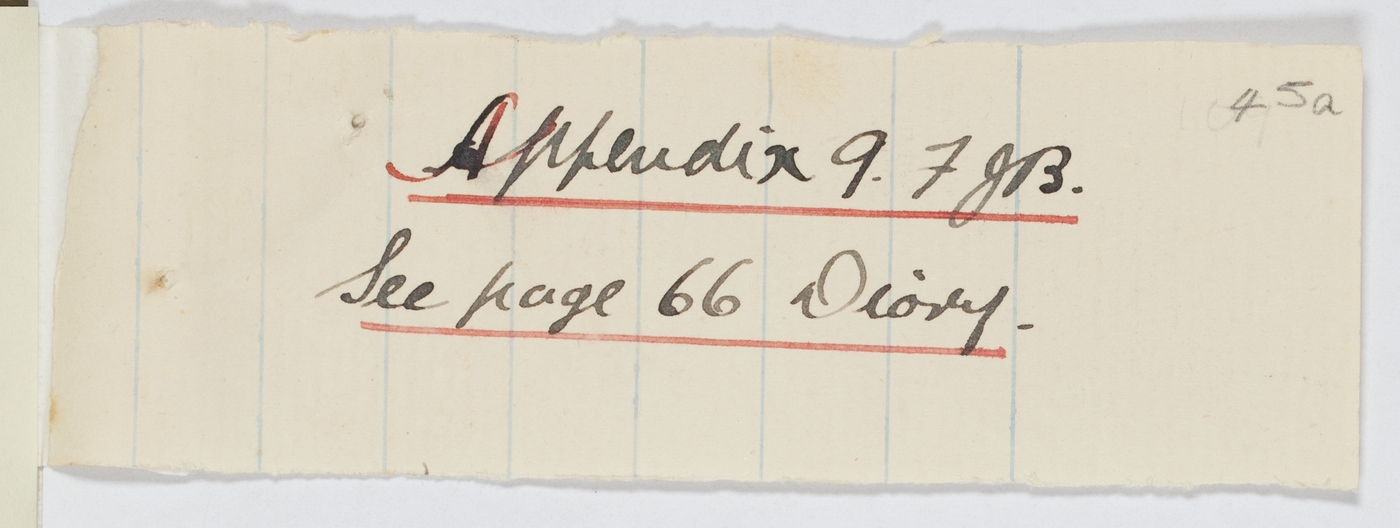 45a
Appendix 9. 7 JB.
See page 66 Diary.